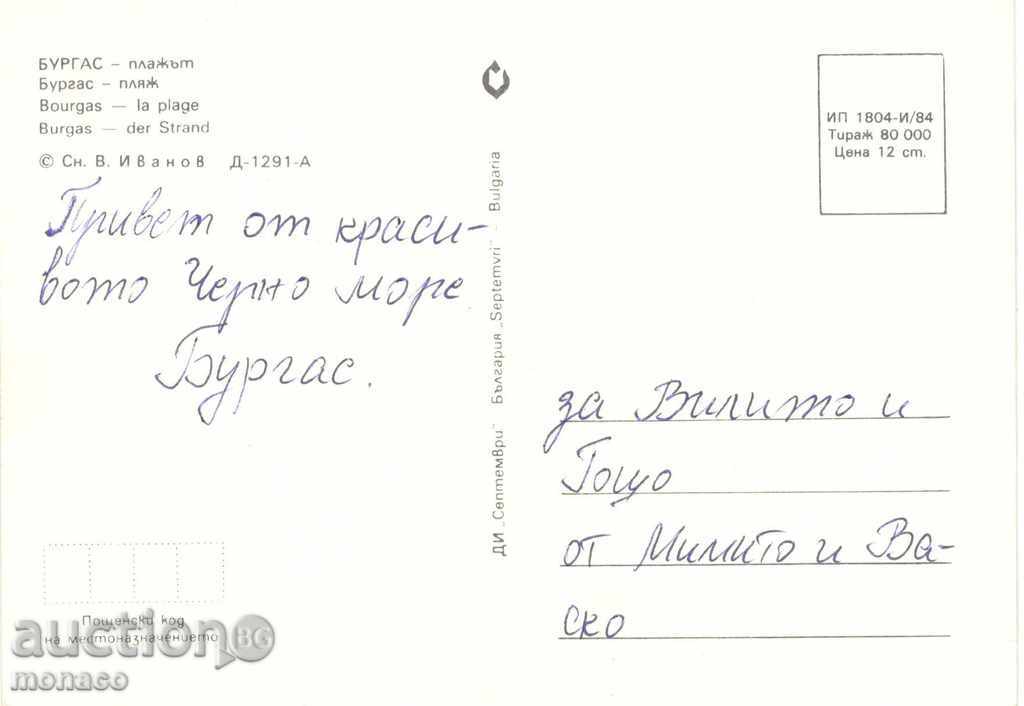 БУРГАС – плажът
Бургас – пляж
Bourgas — la plage
Burgas — der Strand
© Сн. В. Иванов Д-1291-А
Привет от краси-
вото Черно море
Бургас.
Пощенски код
на местоназначението
ДИ „Септември" България „Septemvri" – Bulgaria
ИП 1804-И/84
Тираж 80 000
Цена 12 ст.
за Вилито и
Гошо
от Мимито и Ва-
ско
auction BG
monaco